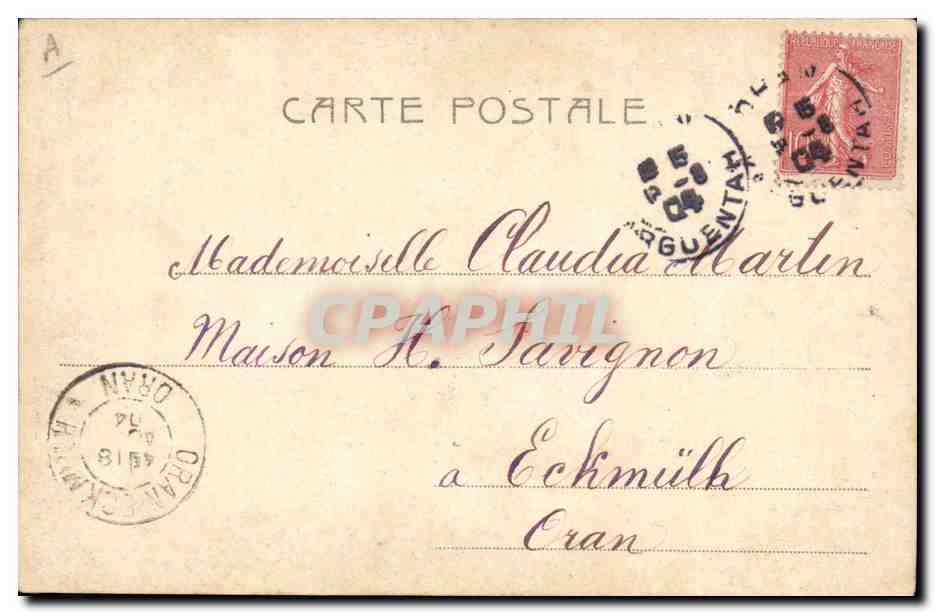 A
RÉPUBLIQUE FRANÇAISE
CARTE POSTALE
5
-8
04
ARGUENTAH
Mademoiselle Claudia Martin
CPAPHIL
Maison H. Savignon
à Eckmülh
Oran
ORAN
04
18
ORAN ECKMUHL